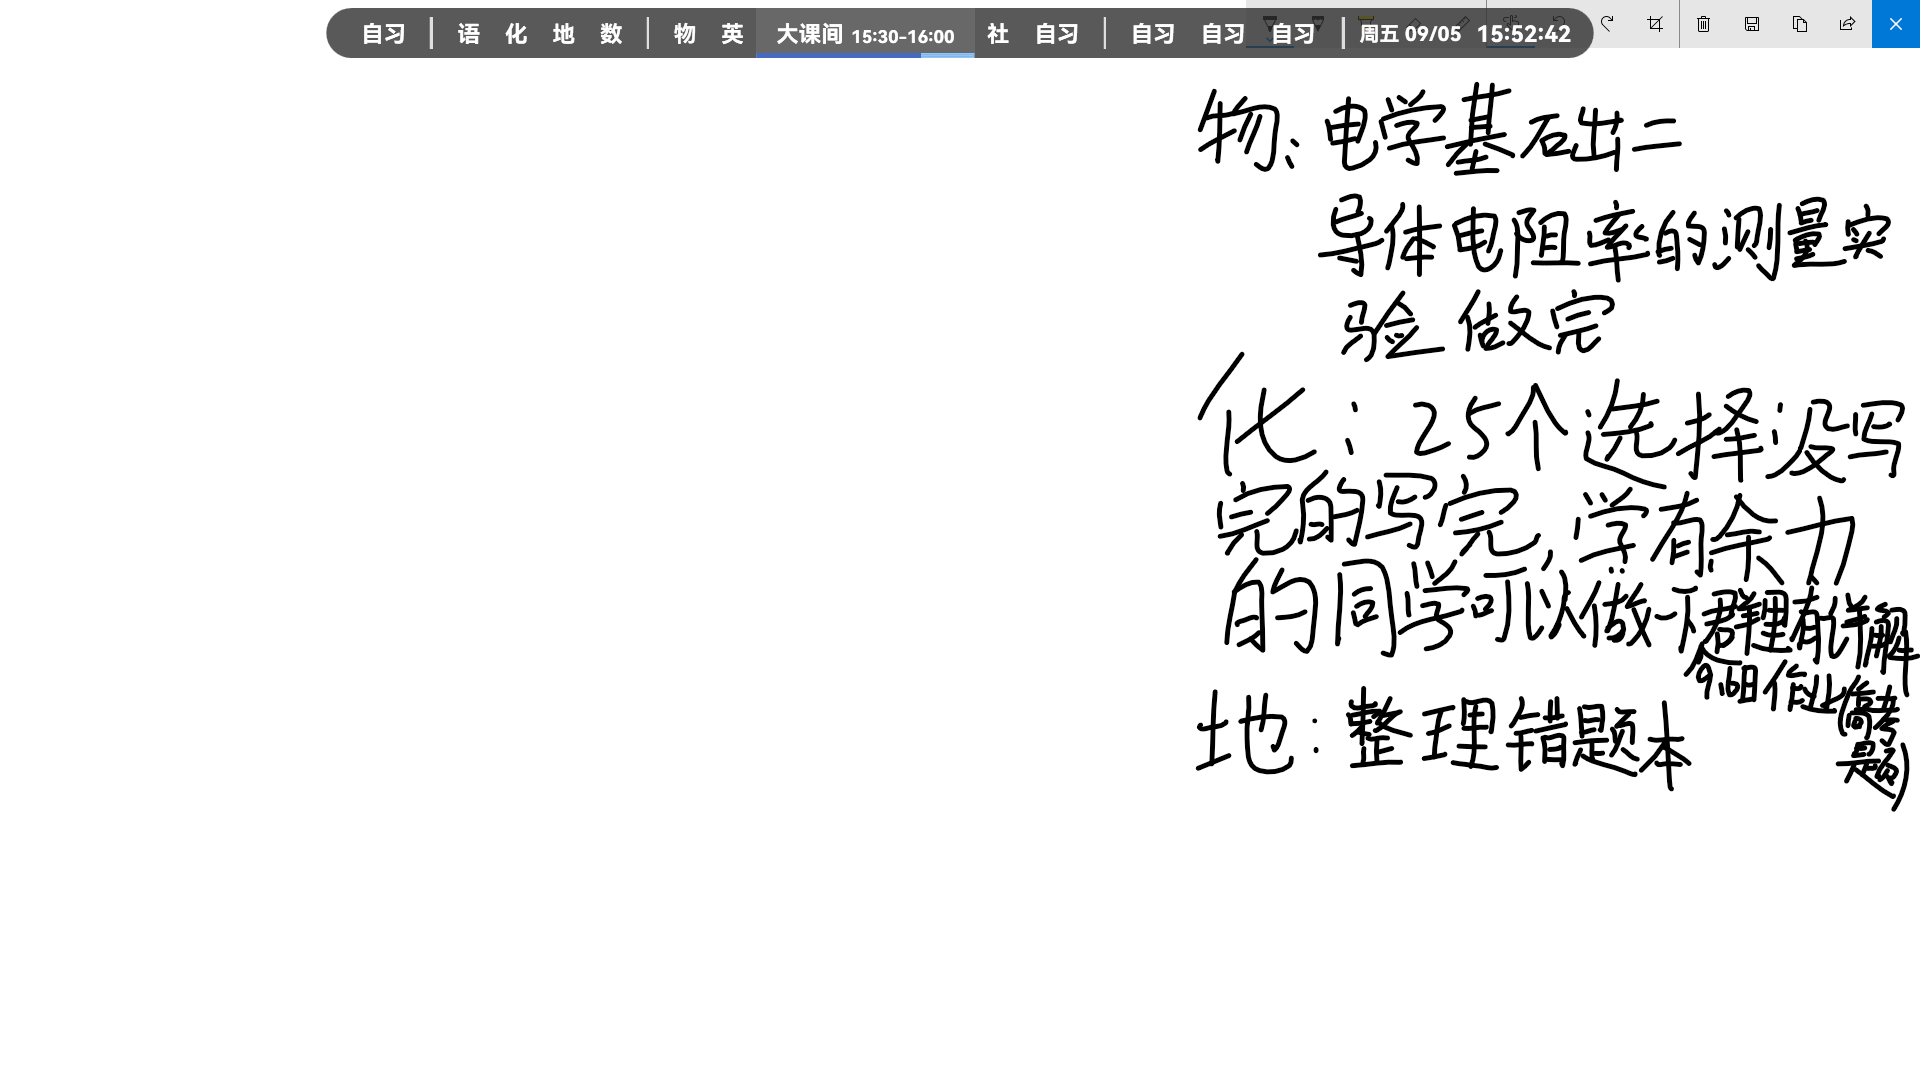 自习 | 语 化 地 数 | 物 英 大课间 15:30-16:00 社 自习 | 自习 自习 自习 | 周五 09/05 15:52:42
物：电学基础二
导体电阻率的测量实
验做完
化：25个选择没写
完的写完，学有余力
的同学可以做一下群里有详解
9.6日作业(高考
题)
地：整理错题本